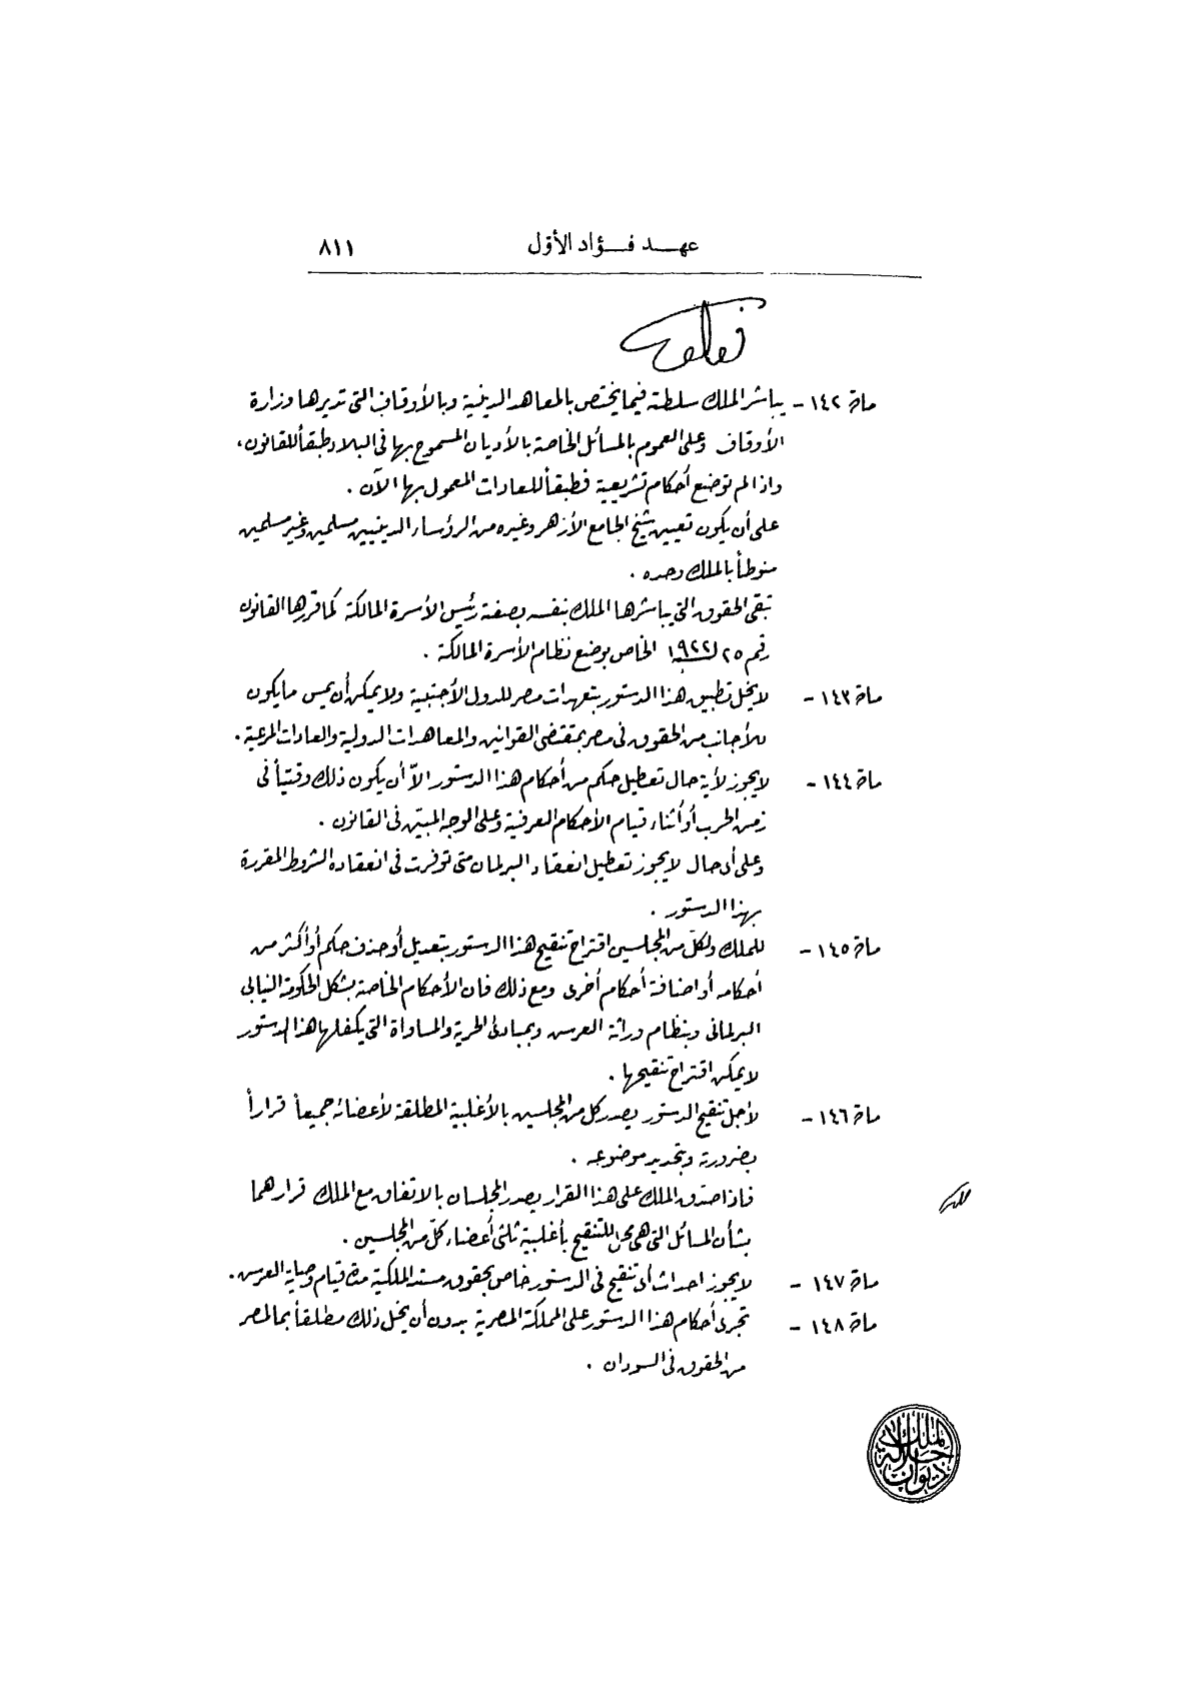 عهـــد فـــؤاد الأوّل ٨١١
مادة ١٤٢ - يباشر الملك سلطته فيما يختص بالمعاهد الدينية وبالأوقاف التى تديرها وزارة
الأوقاف وعلى العموم بالمسائل الخاصة بالأديان المسموح بها فى البلاد طبقاً للقانون،
واذا لم توضع أحكام تشريعية فطبقاً للعادات المعمول بها الآن .
على أن يكون تعيين شيخ الجامع الأزهر وغيره من الرؤساء الدينيين مسلمين وغير مسلمين
منوطاً بالملك وحده .
تبقى الحقوق التى يباشرها الملك بنفسه بصفته رئيس الأسرة المالكة كما قررها القانون
رقم ٢٥ لسنة ١٩٢٢ الخاص بوضع نظام الأسرة المالكة .
مادة ١٤٣ - لا يخل تطبيق هذا الدستور بتعهدات مصر للدول الأجنبية ولا يمكن أن يمس ما يكون
للأجانب من الحقوق فى مصر بمقتضى القوانين والمعاهدات الدولية والعادات المرعية .
مادة ١٤٤ - لا يجوز لأية حال تعطيل حكم من أحكام هذا الدستور الاّ أن يكون ذلك وقتياً فى
زمن الحرب أو أثناء قيام الأحكام العرفية وعلى الوجه المبيّن فى القانون .
وعلى أى حال لا يجوز تعطيل انعقاد البرلمان متى توفرت فى انعقاده الشروط المقررة
بهذا الدستور .
مادة ١٤٥ - للملك ولكلّ من المجلسين اقتراح تنقيح هذا الدستور بتعديل أو حذف حكم أو أكثر من
أحكامه أو اضافة أحكام أخرى ومع ذلك فان الأحكام الخاصة بشكل الحكومة النيابى
البرلمانى وبنظام وراثة العرش وبمبادئ الحرية والمساواة التى يكفلها هذا الدستور
لا يمكن اقتراح تنقيحها .
مادة ١٤٦ - لأجل تنقيح الدستور يصدر كل من المجلسين بالأغلبية المطلقة لأعضائه جميعاً قراراً
بضرورته وبتحديد موضوعه .
فاذا صدّق الملك على هذا القرار يصدر المجلسان بالاتفاق مع الملك قرارهما
بشأن المسائل التى هى محل للتنقيح بأغلبية ثلثى أعضاء كلّ من المجلسين .
مادة ١٤٧ - لا يجوز احداث أى تنقيح فى الدستور خاص بحقوق مسند الملكية مدة قيام وصاية العرش .
مادة ١٤٨ - تجرى أحكام هذا الدستور على المملكة المصرية بدون أن يخل ذلك مطلقاً بما لمصر
من الحقوق فى السودان .
ديوان جلالة الملك